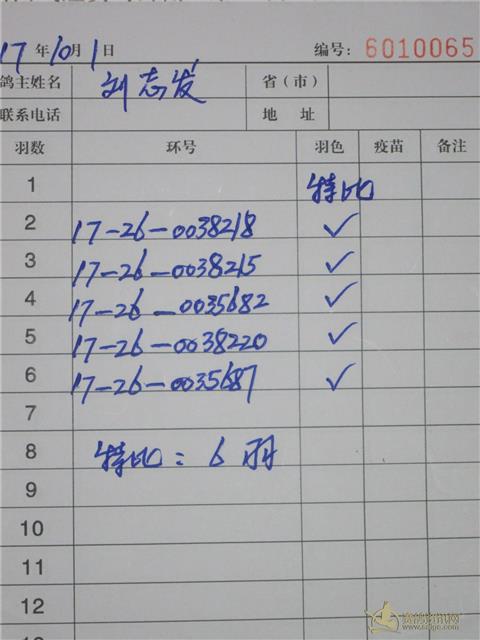 17年10月1日 编号: 6010065
鸽主姓名 刘志发 省(市)
联系电话 地 址
羽数 环号 羽色 疫苗 备注
1 特比
2 17-26-0038218 ✓
3 17-26-0038215 ✓
4 17-26-0035682 ✓
5 17-26-0038220 ✓
6 17-26-0035687 ✓
7
8 特比: 6羽
9
10
11
12